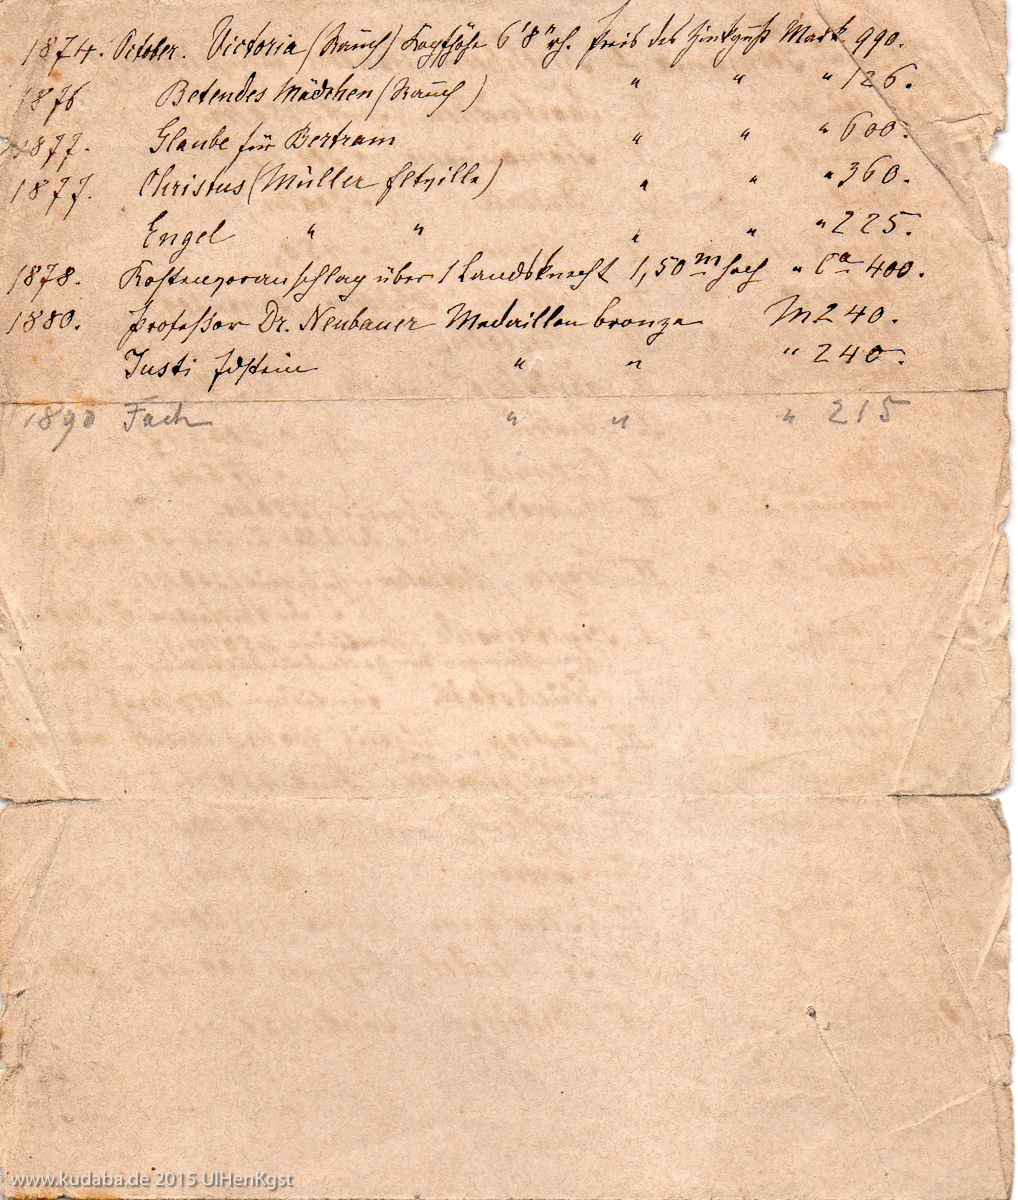 1874. October. Victoria (Rauch) Kopfhöhe 6'8" rh. Preis des Zinkguß Mark 990.
1876 Betendes Mädchen (Rauch) " " " 126.
1877. Glaube für Bertram " " " 600.
1877. Christus (Müller Eltville) " " " 360.
Engel " " " " " 225.
1878. Kostenvoranschlag über 1 Landsknecht 1,50 m hoch " Ca 400.
1880. Professor Dr. Neubauer Medaillon bronze M 240.
Justi Idstein " " " 240.
1890 Fach " " " 215
www.kudaba.de 2015 UlHenKgst